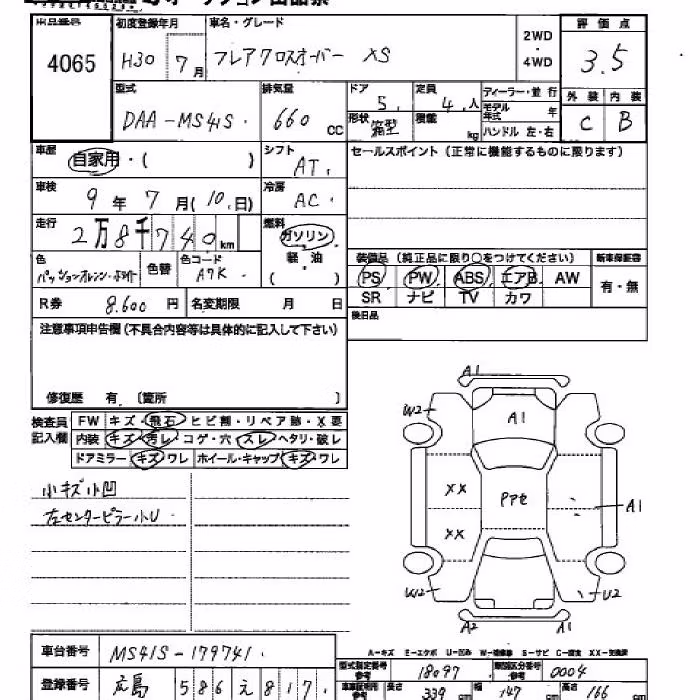 出品番号 初度登録年月 車名・グレード 2WD・4WD 評価点
4065 H30 7月 フレアクロスオーバー XS 3.5
型式 排気量 ドア 定員 ディーラー・並行 外装 内装
DAA-MS41S. 660 cc 5. 4.人 モデル年式 年 C B
形状 箱型 積載 kg ハンドル 左・右
車歴 自家用・( ) シフト AT. セールスポイント(正常に機能するものに限ります)
車検 9年7月(10.日) 冷房 AC.
走行 2万8千740km 燃料 ガソリン・軽・油 ( )
色 パッションオレンジ・ホワイト 色替 色コード A7K. 装備品(純正品に限り○をつけてください) 新車保証書
PS PW ABS エアB AW 有・無
SR ナビ TV カワ
R券 8.600円 名変期限 月 日 後日品
注意事項申告欄(不具合内容等は具体的に記入して下さい)
修復歴 有.〔箇所 〕
検査員記入欄 FW キズ・飛石・ヒビ割・リペア跡・X要
内装 キズ・汚レ・コゲ・穴・スレ・ヘタリ・破レ
ドアミラー キズ・ワレ ホイール・キャップ キズ・ワレ
小キズ小凹
左センターピラー小U
A1
W2 A1
XX PPセ A1
XX
W2 U2
A2 A1
A-キズ E-エクボ U-凹み W-補修跡 S-サビ C-腐食 XX-交換済
車台番号 MS41S-179741. 型式指定番号 18097 類別区分番号 0004
登録番号 広島 586 え 817. 長さ 339cm 幅 147cm 高さ 166cm